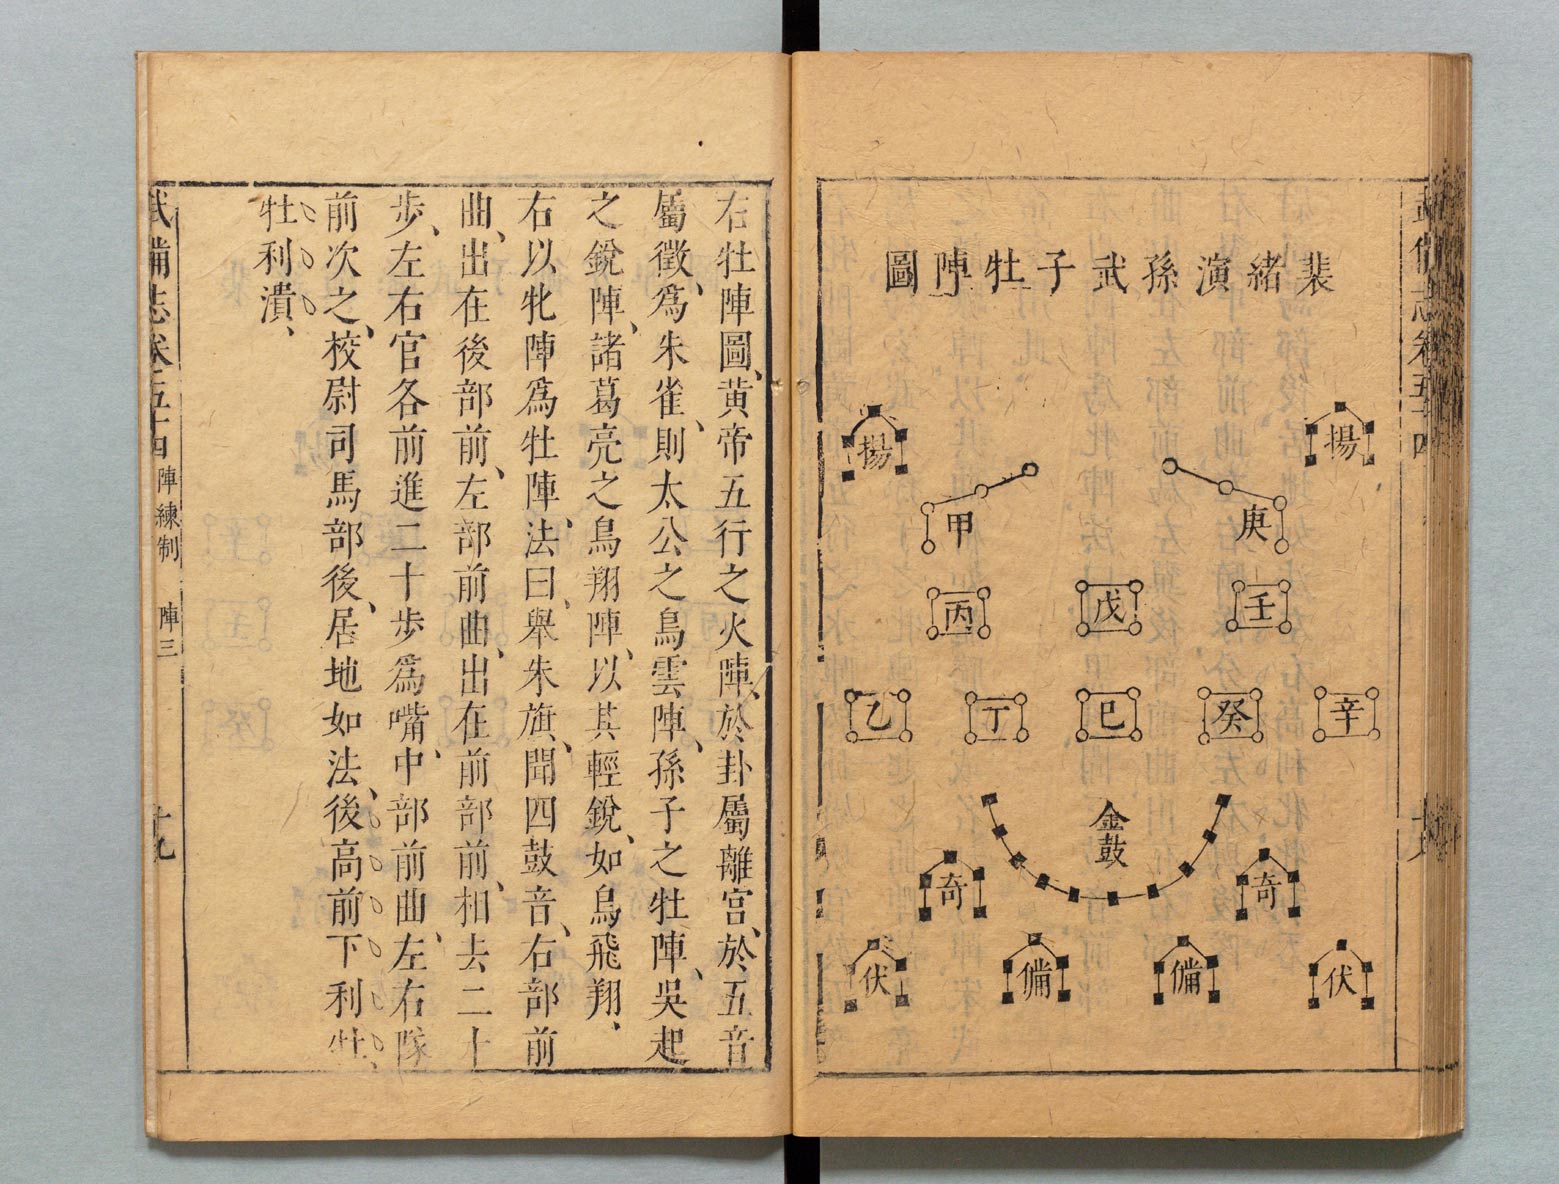 裴緒演孫武子牡陣圖
揚
揚
庚
甲
壬
戊
丙
辛
癸
巳
丁
乙
金鼓
奇
奇
伏
備
備
伏
右牡陣圖、黄帝五行之火陣、於卦屬離宫、於五音
屬徵、爲朱雀、則太公之鳥雲陣、孫子之牡陣、吳起
之銳陣、諸葛亮之鳥翔陣、以其輕銳、如鳥飛翔、
右以牝陣爲牡陣、法曰、舉朱旗、聞四鼓音、右部前
曲、出在後部前、左部前曲、出在前部前、相去二十
步、左右官各前進二十步爲嘴、中部前曲、左右隊
前次之、校尉司馬部後、居地如法、後高前下利牡、
牡利潰、
武備志卷五十四 陣練制 陣三 十九